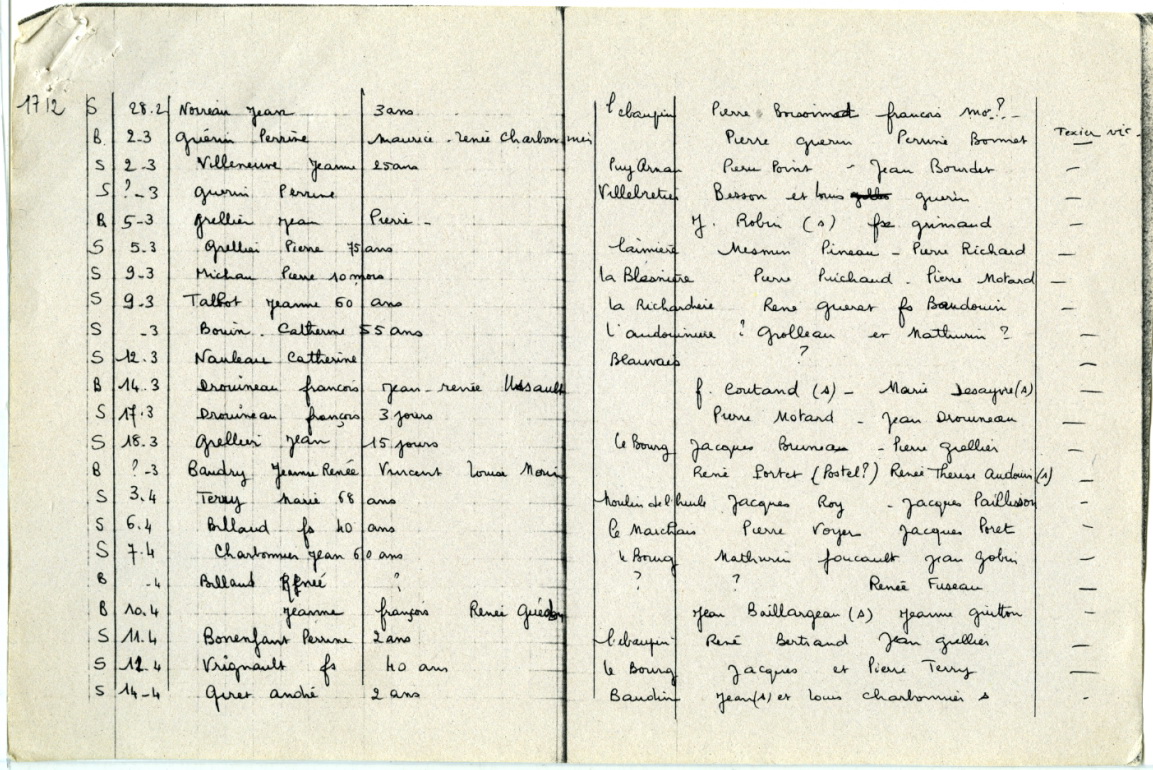 1712 S 28.2 Noireau Jean 3 ans l'ebaupin Pierre françois Mo.?
B. 2.3 Guérin Perrine Maurice - renée Charbonnier Pierre guerin Perrine Bonnet Texier vic -
S 2-3 Villeneuve Jeanne 25 ans Puy Arnan Pierre Point - Jean Bourdet -
S ?-3 Guerin Perrine Villebretier Besson et louis guerin -
B 5-3 grellier jean Pierre - J. Robin (s) fse grimaud -
S 5.3 Grellier Pierre 75 ans Mesmin Pineau - Pierre Richard -
S 9-3 Michau Pierre 10 mois la Blasnière Pierre Puichaud - Pierre Motard -
S 9-3 Talbot Jeanne 60 ans la Richardière René gueret fs Baudouin -
S -3 Bouin. Catherine 55 ans l'audouiniere ? Grolleau et Mathurin ? -
S 12.3 Nauleau Catherine Beauvais ? -
B 14.3 Drouineau françois Jean - renée Ussault f. Coutand (s) - Marie Desayvre (s) -
S 17.3 Drouineau françois 3 jours Pierre Motard - Jean Drouineau -
S 18.3 Grellier Jean 15 jours le Bourg Jacques Bruneau - Pierre grellier -
B ?-3 Baudry Jeanne Renée Vincent Louise Morin René Portet (Postel?) Renée Therese Audouin (s) -
S 3.4 Terry Marie 68 ans Moulin de l'heule Jacques Roy - Jacques Paillusson -
S 6.4 Billaud fs 40 ans le Marchais Pierre Voyer Jacques Poret -
S 7.4 Charbonnier Jean 60 ans le Bourg Mathurin foucault jean gobin -
B -4 Billaud Renée ? ? ? Renée Fuseau -
B 10.4 Jeanne françois Renée Guédon Jean Baillargeau (s) Jeanne guitton -
S 11.4 Bonenfant Perrine 2 ans l'ebaupin René Bertrand Jean grellier -
S 12.4 Vrignault fs 40 ans le Bourg Jacques et Pierre Terry -
S 14-4 Giret andré 2 ans Baudin Jean (s) et louis Charbonnier s -